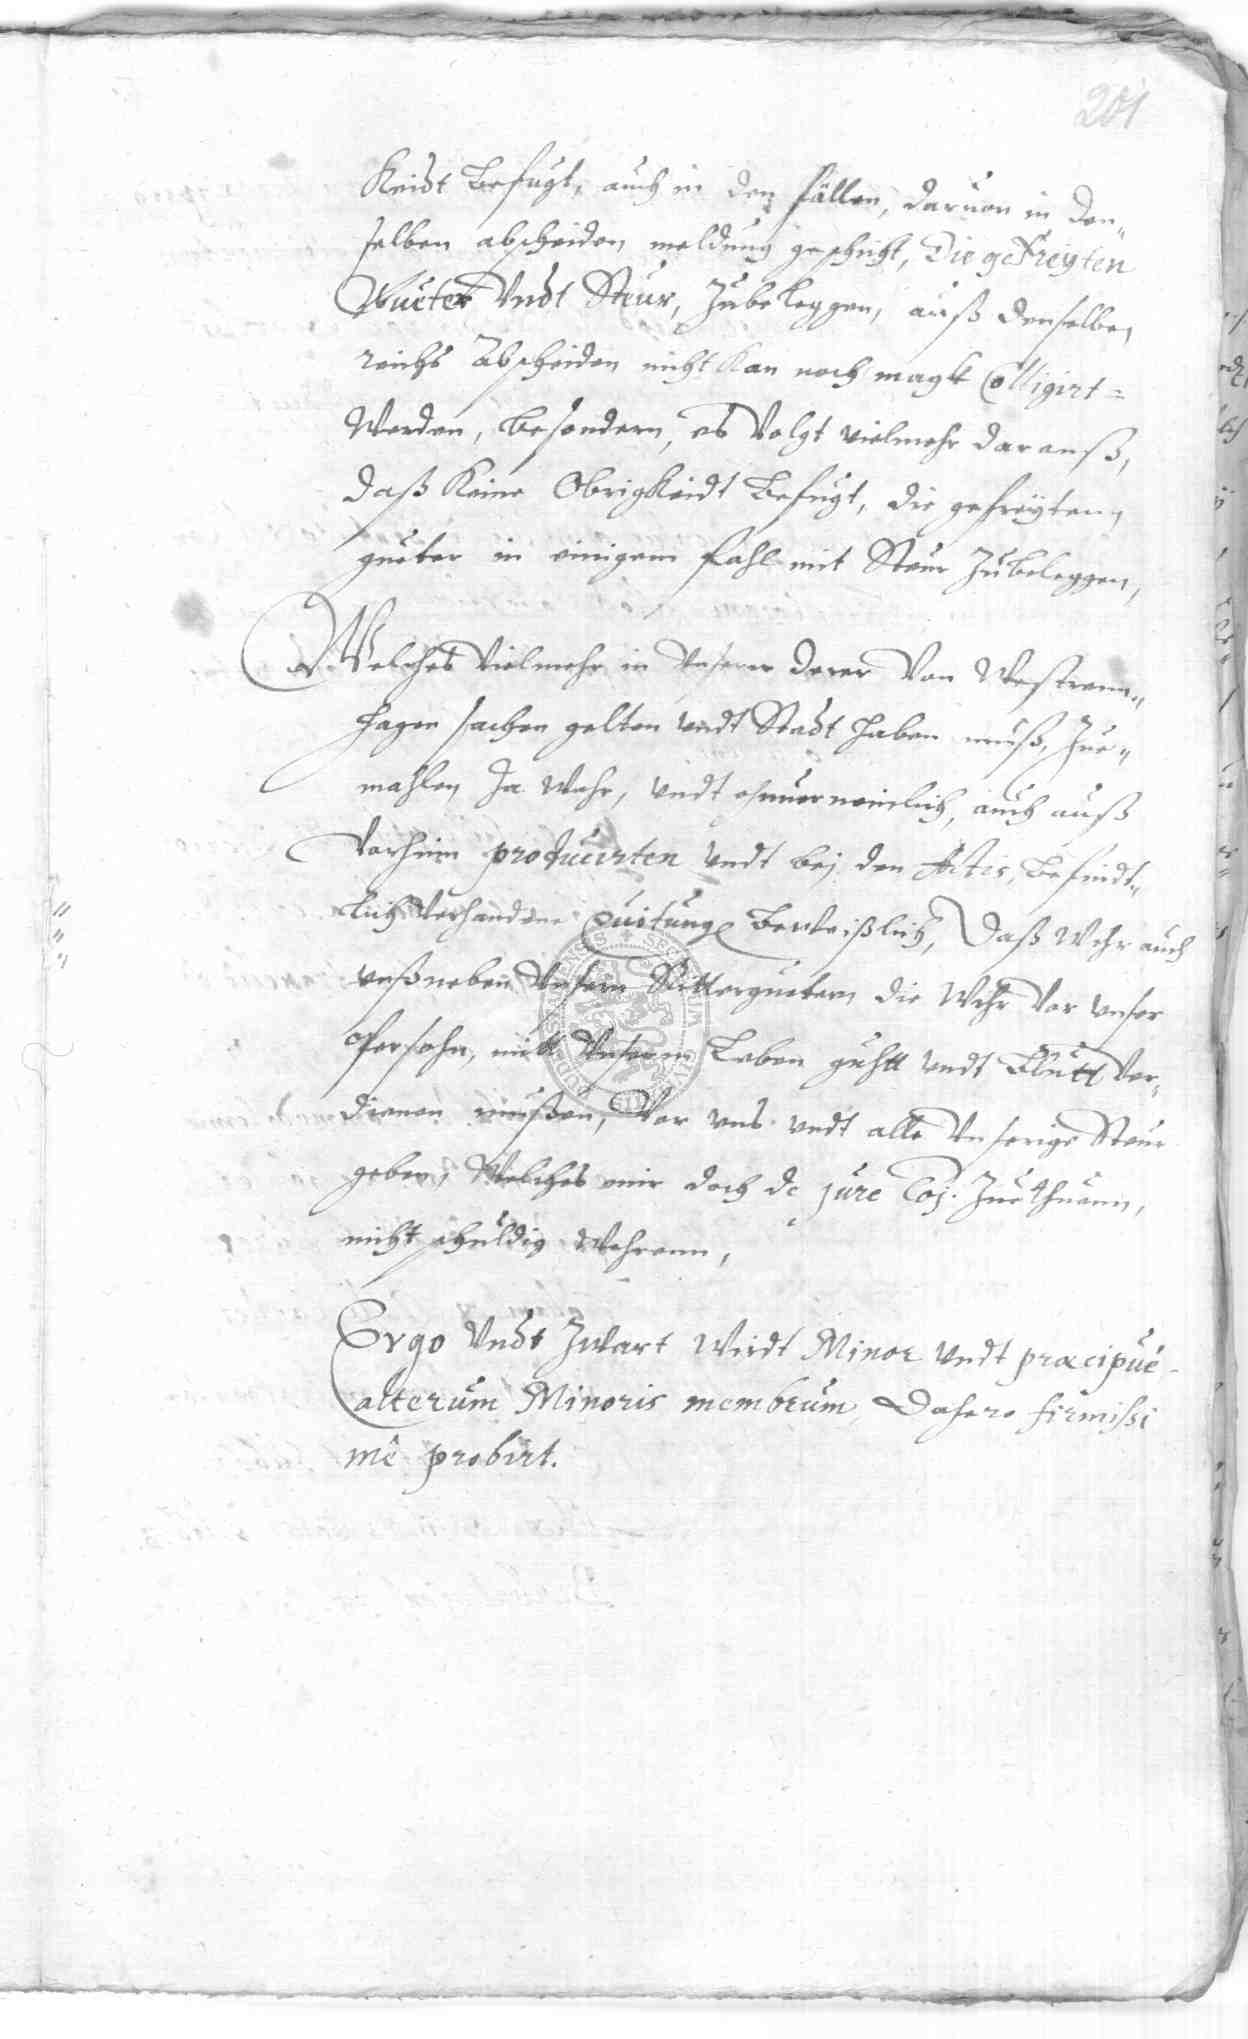 201
Keidt befugt, auch in den fällen, daruon in den„
selben abscheiden meldung geschicht, die gefreyten
Gueter vndt Steur, Zubeleggen, auß denselben
reichs abscheiden nicht kan noch magk colligirt=
Werden, besondern, es Volgt vielmehr darauß,
daß Keine Obrigkeidt befugt, die gefreyten
gueter in einigem fahl mit Steur Zubeleggen,
Welches Vielmehr in Vnserer derer Von Westrenn„
hagen sachen gelten vndt Stadt haben muß, Zue„
mahlen Ja Wahr, vndt ohnuerneinlich, auch auß
Vorhinn producirten vndt bej den Actis, befindt„
lich Verhandene Quitung beweißlich, Daß Wihr auch
vnß neben Vnsern Rittergüetern die Wihr Vor vnser
Persohn, mitt Vnserm Leben guhtt vndt Blutt Ver„
dienen müßen, Vor vns vndt alle Vnserige Steur
geben, Welches wir doch de jure Coj. Zuethuenn,
nicht schuldig Wehrenn,
Ergo Vndt Zwart Wirdt Minor vndt præcipuè
alterum Minoris membrum, Dahero firmissi
mè probirt.